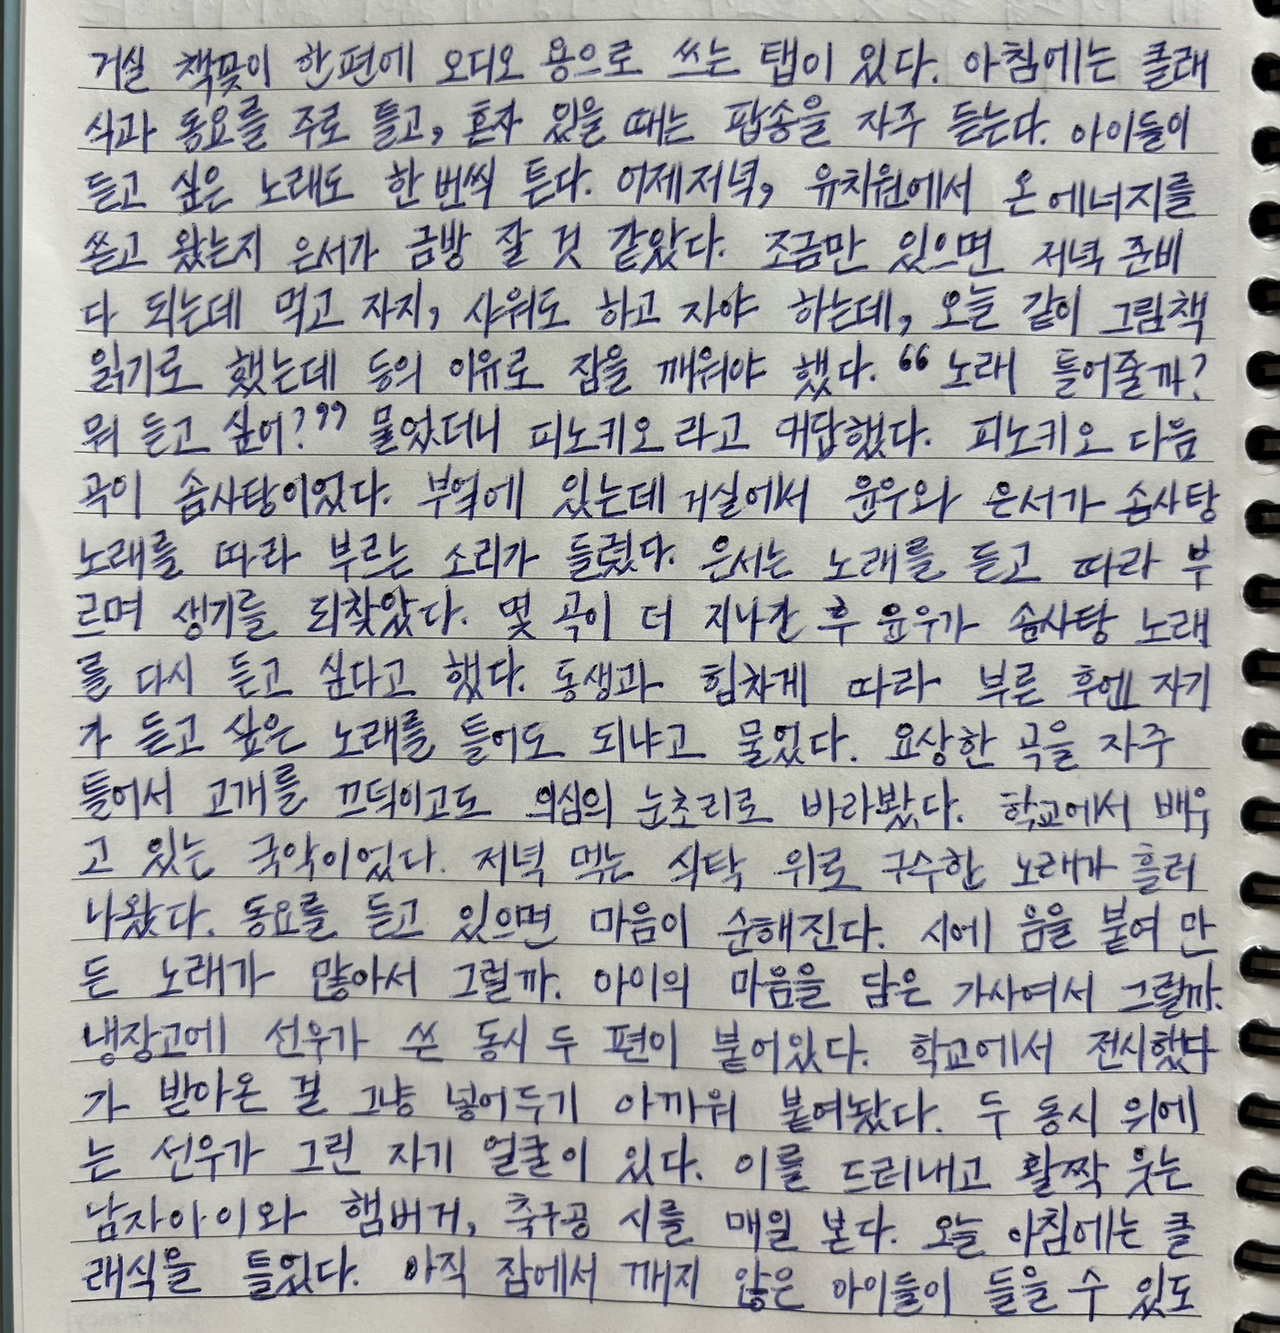 거실 책꽂이 한편에 오디오 용으로 쓰는 탭이 있다. 아침에는 클래
식과 동요를 주로 틀고, 혼자 있을 때는 팝송을 자주 듣는다. 아이들이
듣고 싶은 노래도 한번씩 튼다. 어제저녁, 유치원에서 온 에너지를
쏟고 왔는지 은서가 금방 잘 것 같았다. 조금만 있으면 저녁 준비
다 되는데 먹고 자지, 샤워도 하고 자야 하는데, 오늘 같이 그림책
읽기로 했는데 등의 이유로 잠을 깨워야 했다. “노래 틀어줄까?
뭐 듣고 싶어?” 물었더니 피노키오라고 대답했다. 피노키오 다음
곡이 솜사탕이었다. 부엌에 있는데 거실에서 윤우와 은서가 솜사탕
노래를 따라 부르는 소리가 들렸다. 은서는 노래를 듣고 따라 부
르며 생기를 되찾았다. 몇 곡이 더 지나간 후 윤우가 솜사탕 노래
를 다시 듣고 싶다고 했다. 동생과 힘차게 따라 부른 후엔 자기
가 듣고 싶은 노래를 틀어도 되냐고 물었다. 요상한 곡을 자주
틀어서 고개를 끄덕이고도 의심의 눈초리로 바라봤다. 학교에서 배우
고 있는 국악이었다. 저녁 먹는 식탁 위로 구수한 노래가 흘러
나왔다. 동요를 듣고 있으면 마음이 순해진다. 시에 음을 붙여 만
든 노래가 많아서 그럴까. 아이의 마음을 담은 가사여서 그럴까.
냉장고에 선우가 쓴 동시 두 편이 붙어있다. 학교에서 전시했다
가 받아온 걸 그냥 넣어두기 아까워 붙여놨다. 두 동시 위에
는 선우가 그린 자기 얼굴이 있다. 이를 드러내고 활짝 웃는
남자아이와 햄버거, 축구공 시를 매일 본다. 오늘 아침에는 클
래식을 틀었다. 아직 잠에서 깨지 않은 아이들이 들을 수 있도